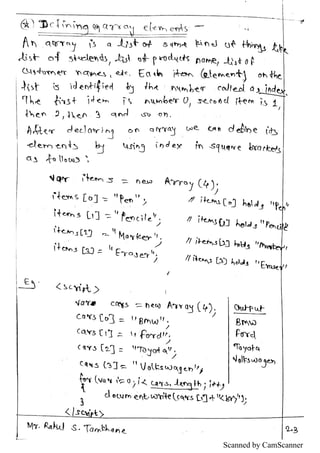 (*) Defining an array elements -
An array is a list of same kind of things like
list of students, list of products name, list of
customer names, etc. Each item (element) on the
list is identified by the number called as index.
The first item is number 0, second item is 1,
then 2, then 3 and so on.
After declaring an array we can define its
elements by using index in square brackets
as follows :
var items = new Array (4);
items [0] = "Pen"; // items [0] holds "Pen"
items [1] = "Pencile"; // items [1] holds "Pencile"
items [2] = "Marker"; // items [2] holds "Marker"
items [3] = "Eraser"; // items [3] holds "Eraser"
Eg: <script>
var cars = new Array (4);
cars [0] = "BMW";
cars [1] = "Ford";
cars [2] = "Toyota";
cars [3] = "Volkswagen";
for (var i=0; i< cars.length; i++)
{
document.write(cars [i] + "<br>");
}
</script>
Output
BMW
Ford
Toyota
Volkswagen
Mr. Rahul S. Tamkhane 2-3
Scanned by CamScanner